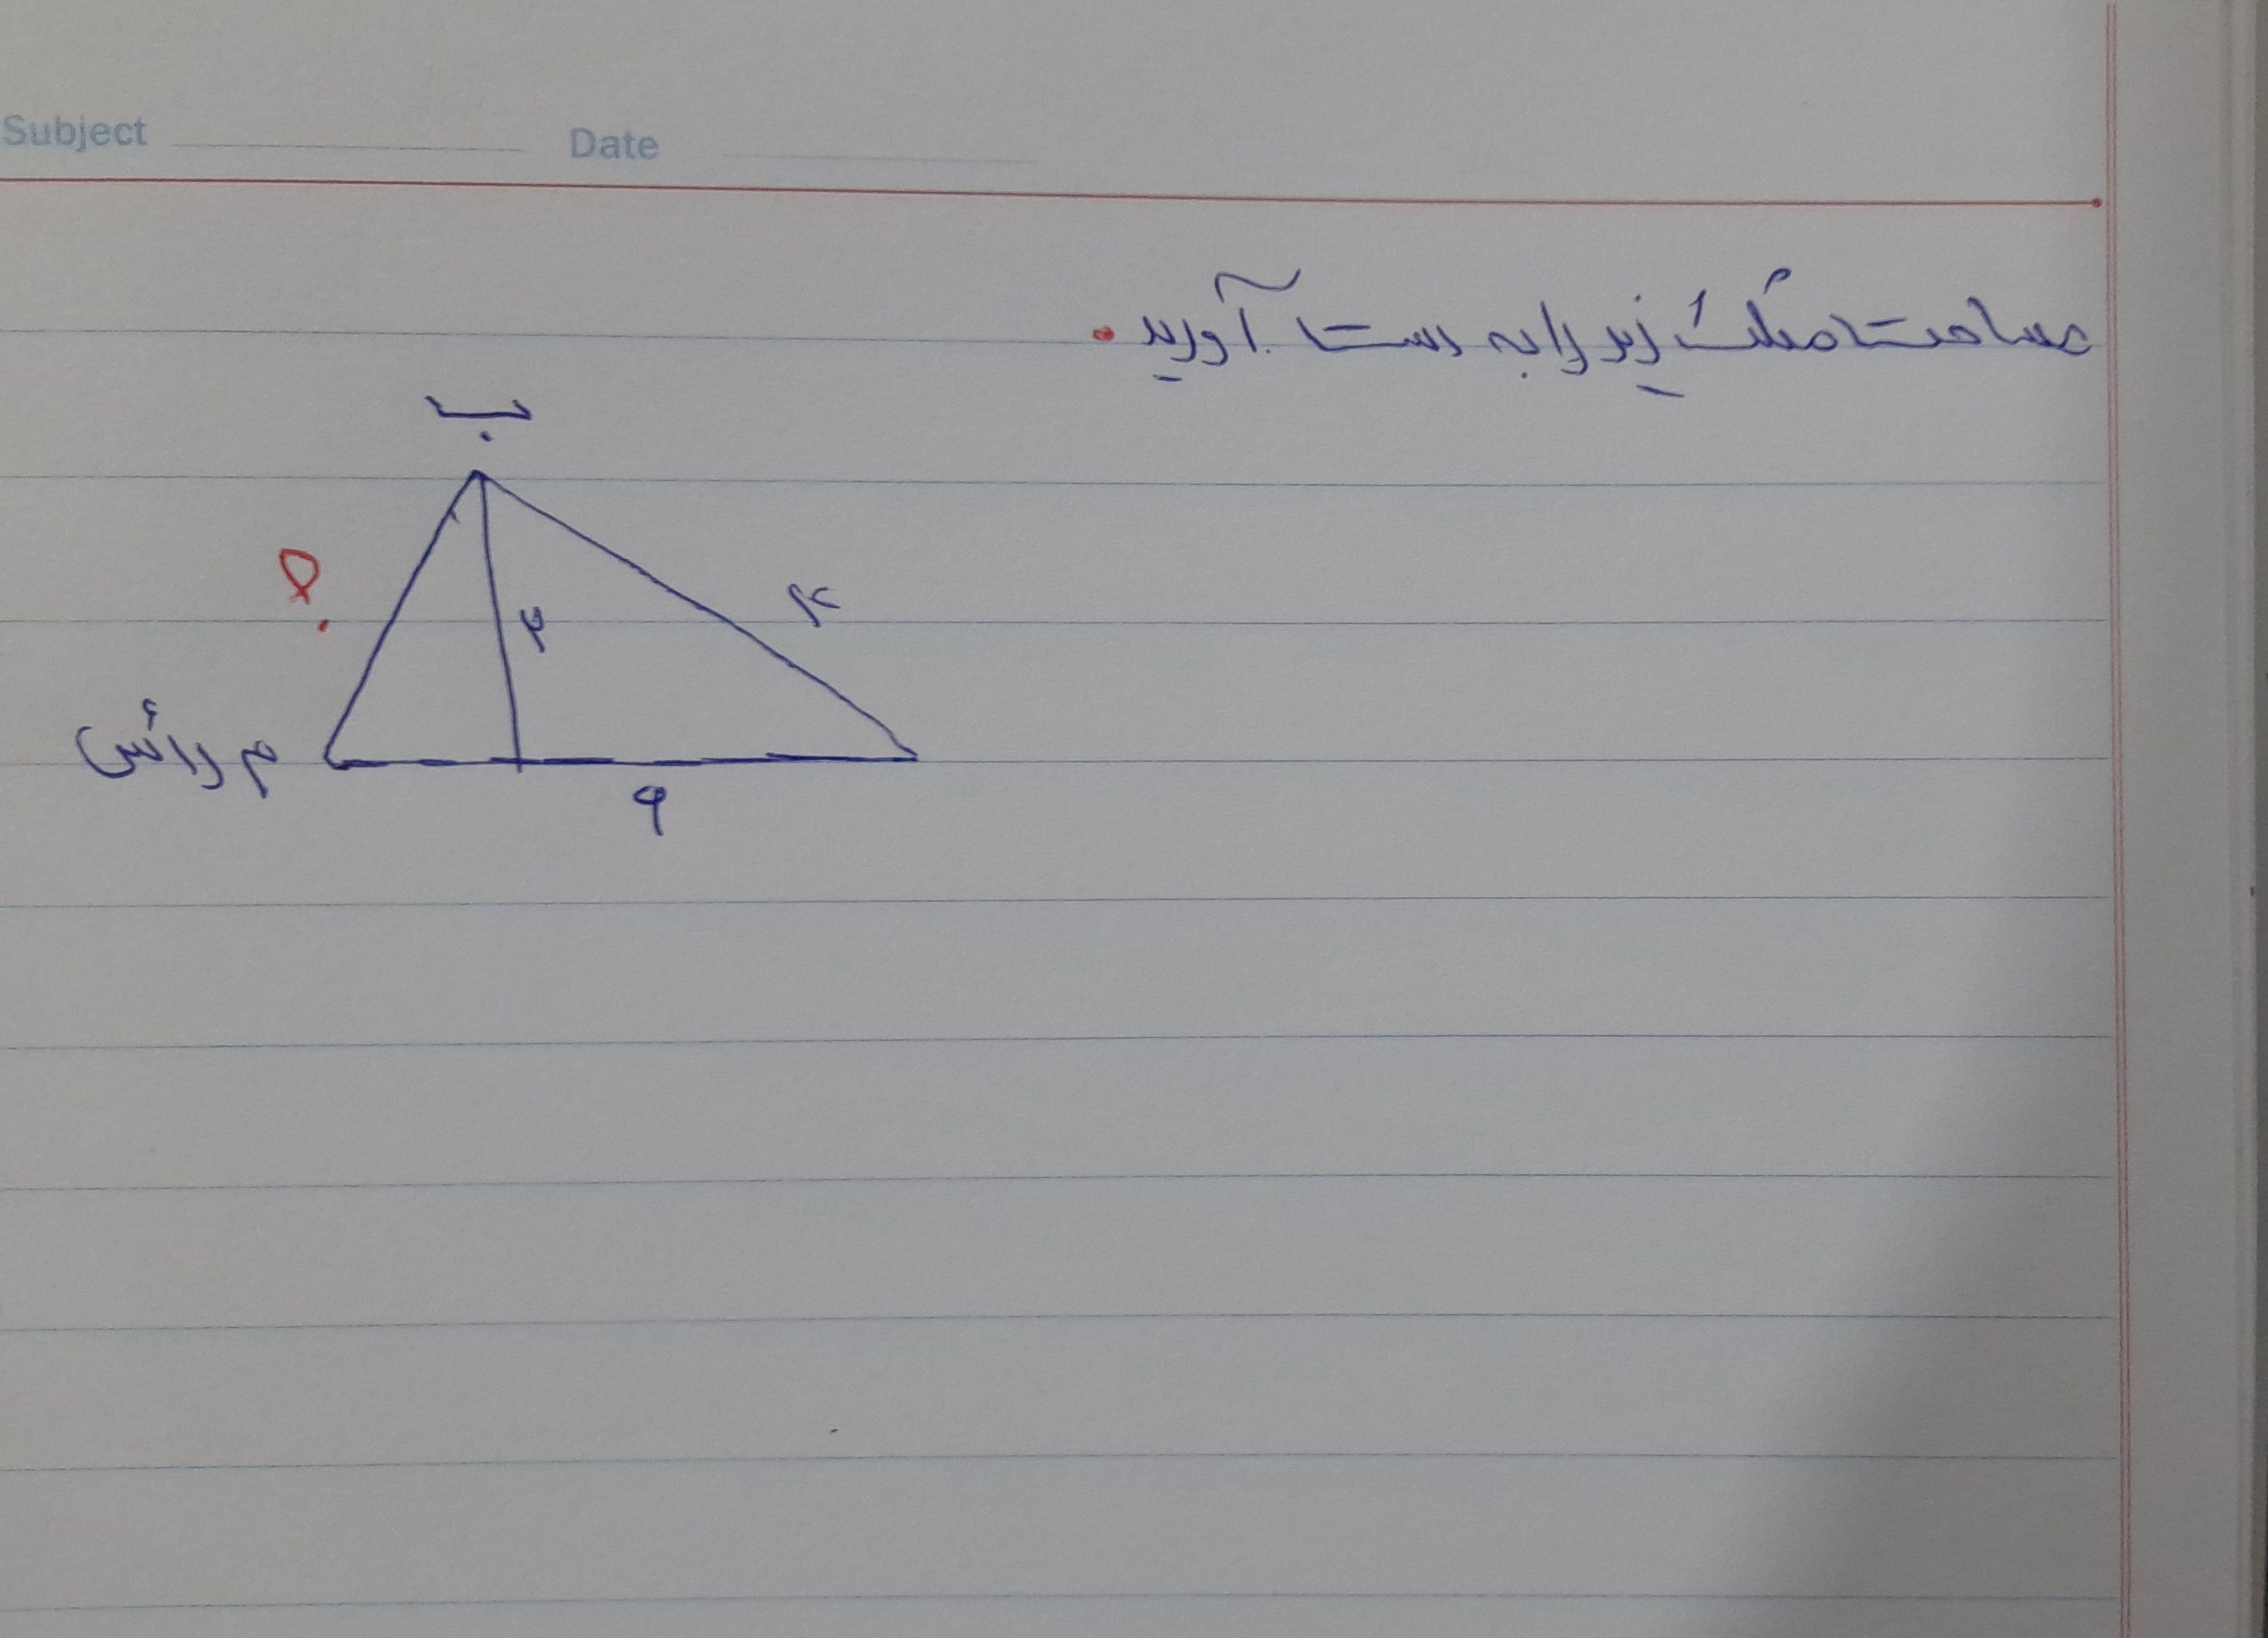 Subject Date
مساحت مثلث زیر را به دست آورید.
ب
۵
۳
۴
م رأس
۶